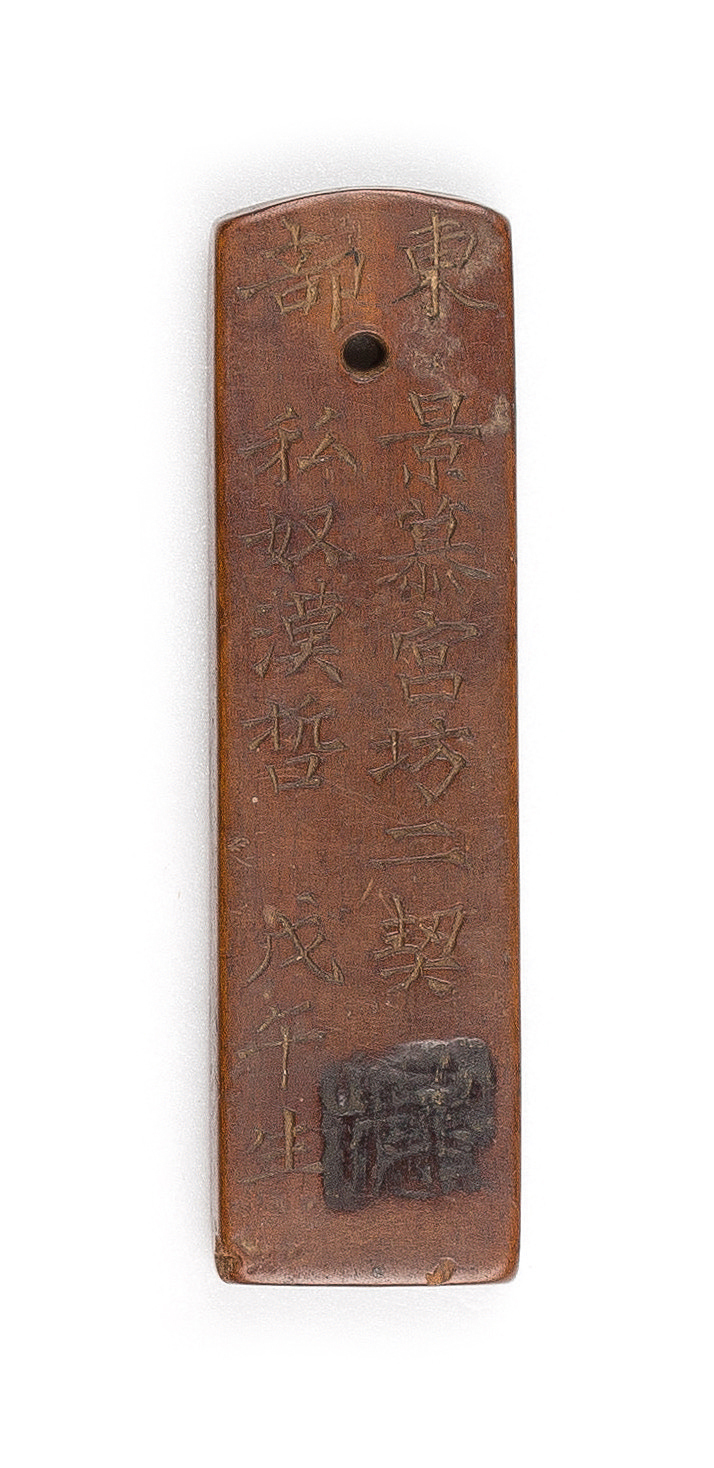 東部
景慕宮坊二契
私奴漢哲 戊午生